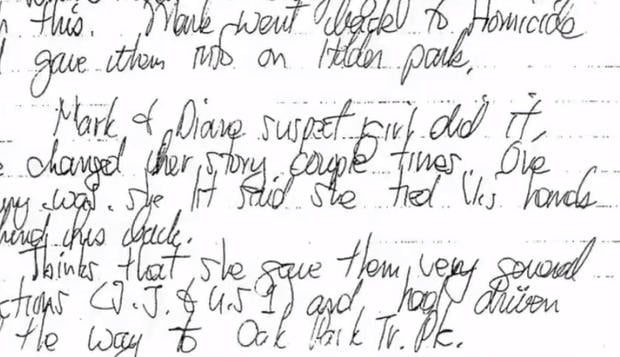 this. Mark went back to Homicide
gave them info on Hidden park.
Mark & Diane suspect girl did it,
changed her story couple times. One
was. she said she tied V.s hands
his back.
Thinks that she gave them very general
(J.J. & U.S 1) and had driven
the way to Oak Park Tr. Pk.